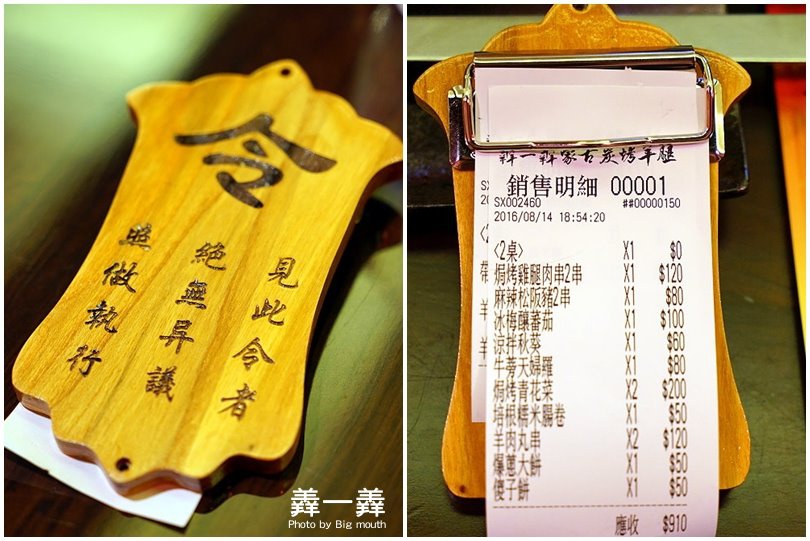 令
見此令者
絕無昇議
照做執行
羴一羴
Photo by Big mouth
羴一羴蒙古炭烤羊腿
銷售明細 00001
SX002460 ##00000150
2016/08/14 18:54:20
<2桌> X1 $0
焗烤雞腿肉串2串 X1 $120
麻辣松阪豬2串 X1 $80
冰梅釀蕃茄 X1 $100
涼拌秋葵 X1 $60
牛蒡天婦羅 X1 $80
焗烤青花菜 X2 $200
培根糯米腸卷 X1 $50
羊肉丸串 X2 $120
爆蔥大餅 X1 $50
傻子餅 X1 $50
應收 $910